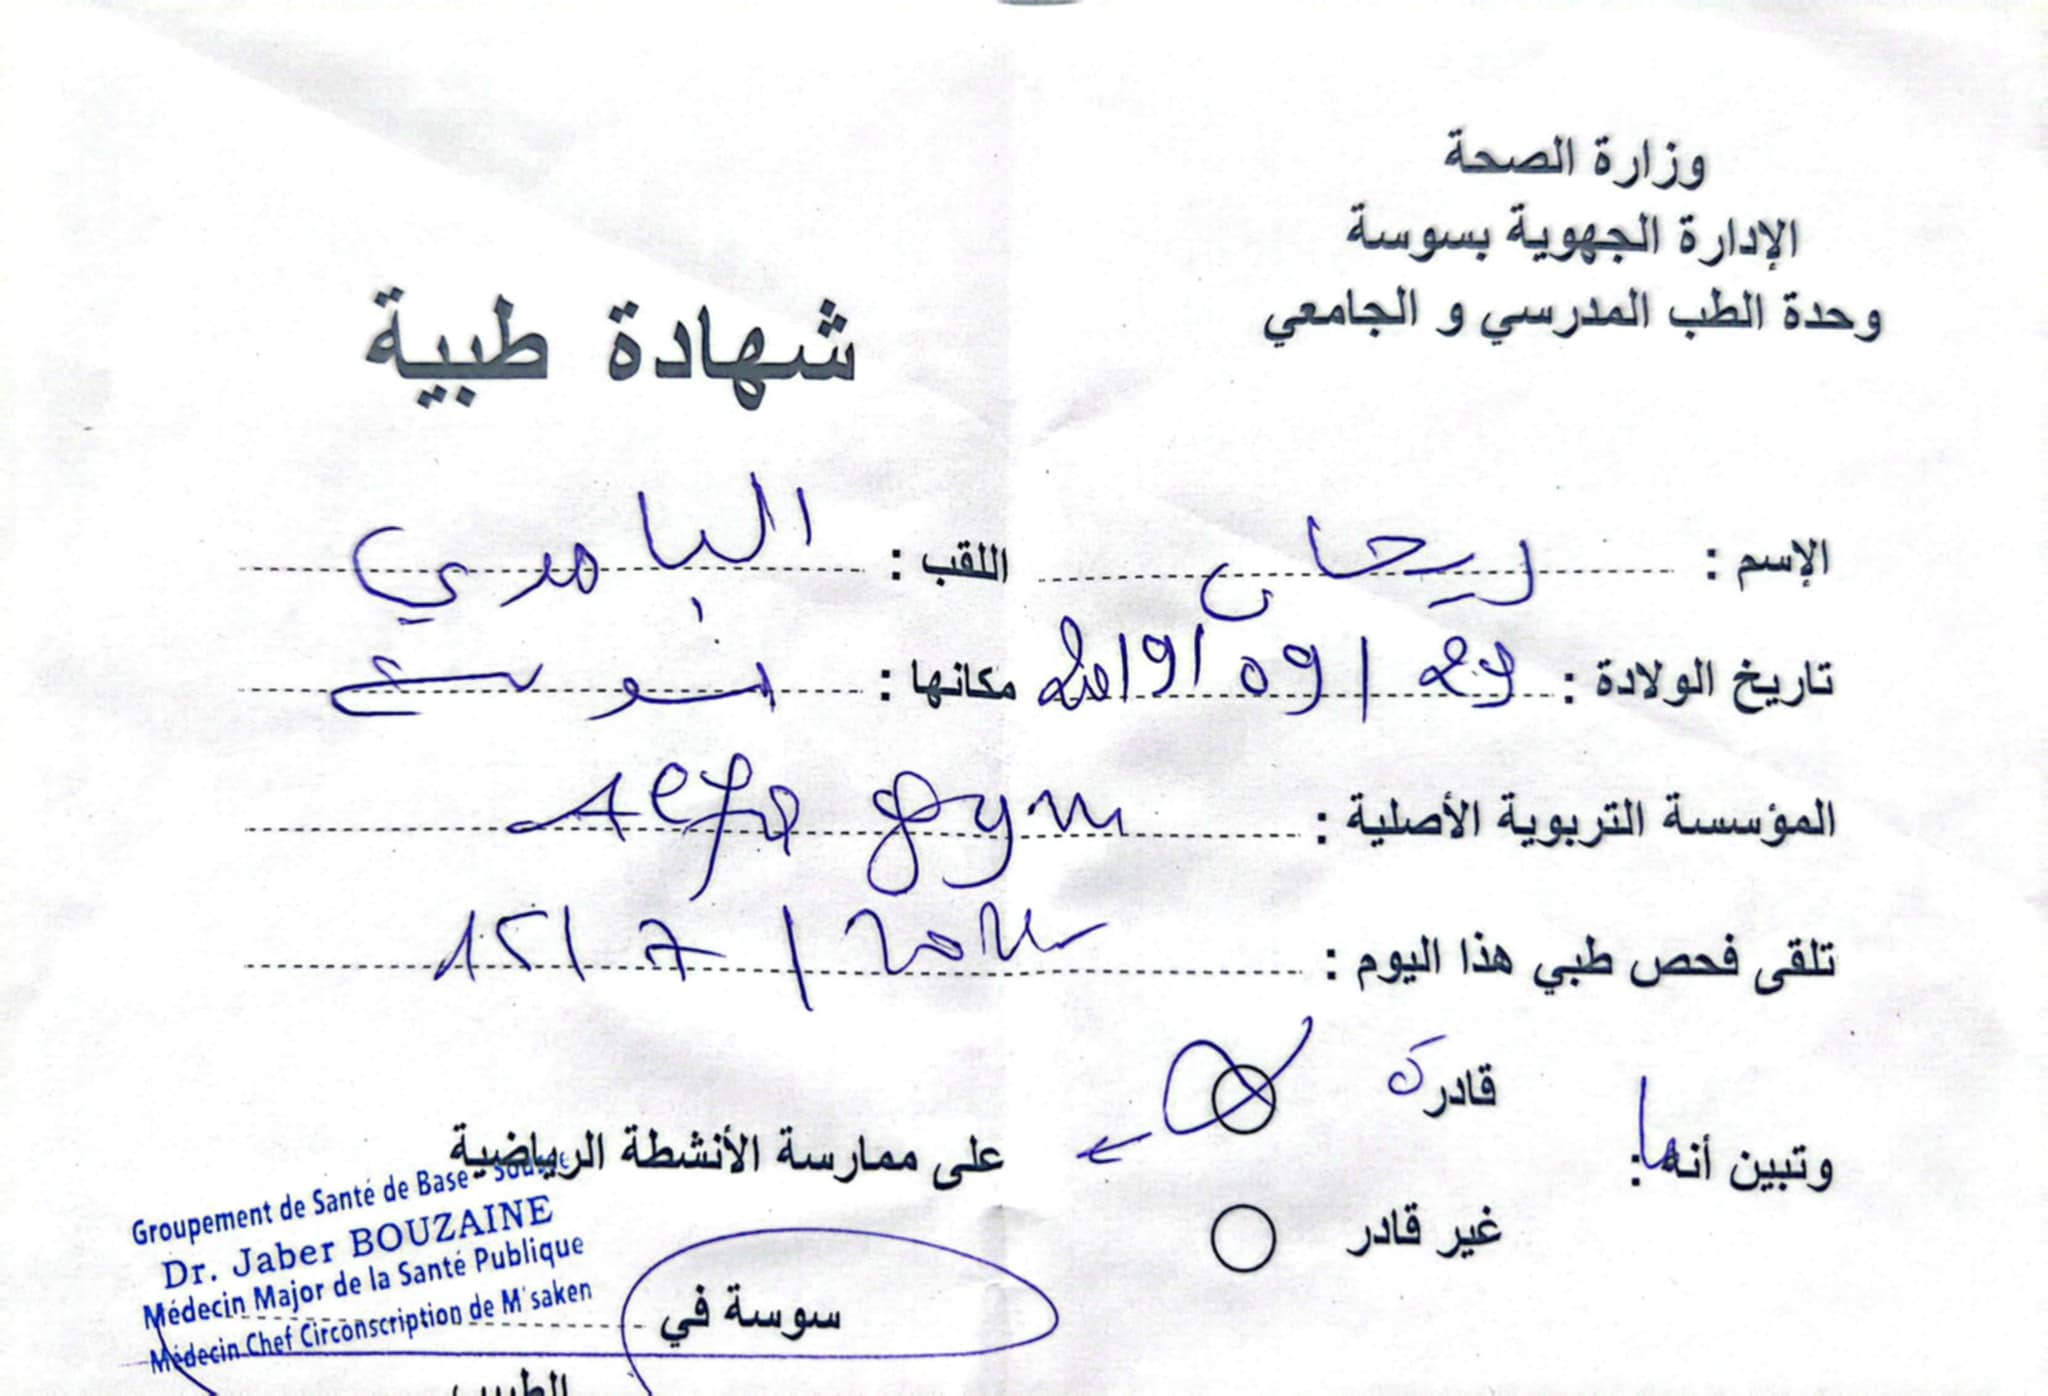 وزارة الصحة
الإدارة الجهوية بسوسة
وحدة الطب المدرسي و الجامعي
شهادة طبية
الإسم : ريحان اللقب :
تاريخ الولادة : 29/09/2019 مكانها : سوسة
المؤسسة التربوية الأصلية : gym
تلقى فحص طبي هذا اليوم : 15/7/
وتبين أنها :
قادرة
غير قادر
على ممارسة الأنشطة الرياضية
سوسة في
الطبيب
Groupement de Santé de Base - Sousse
Dr. Jaber BOUZAINE
Médecin Major de la Santé Publique
Médecin Chef Circonscription de M'saken